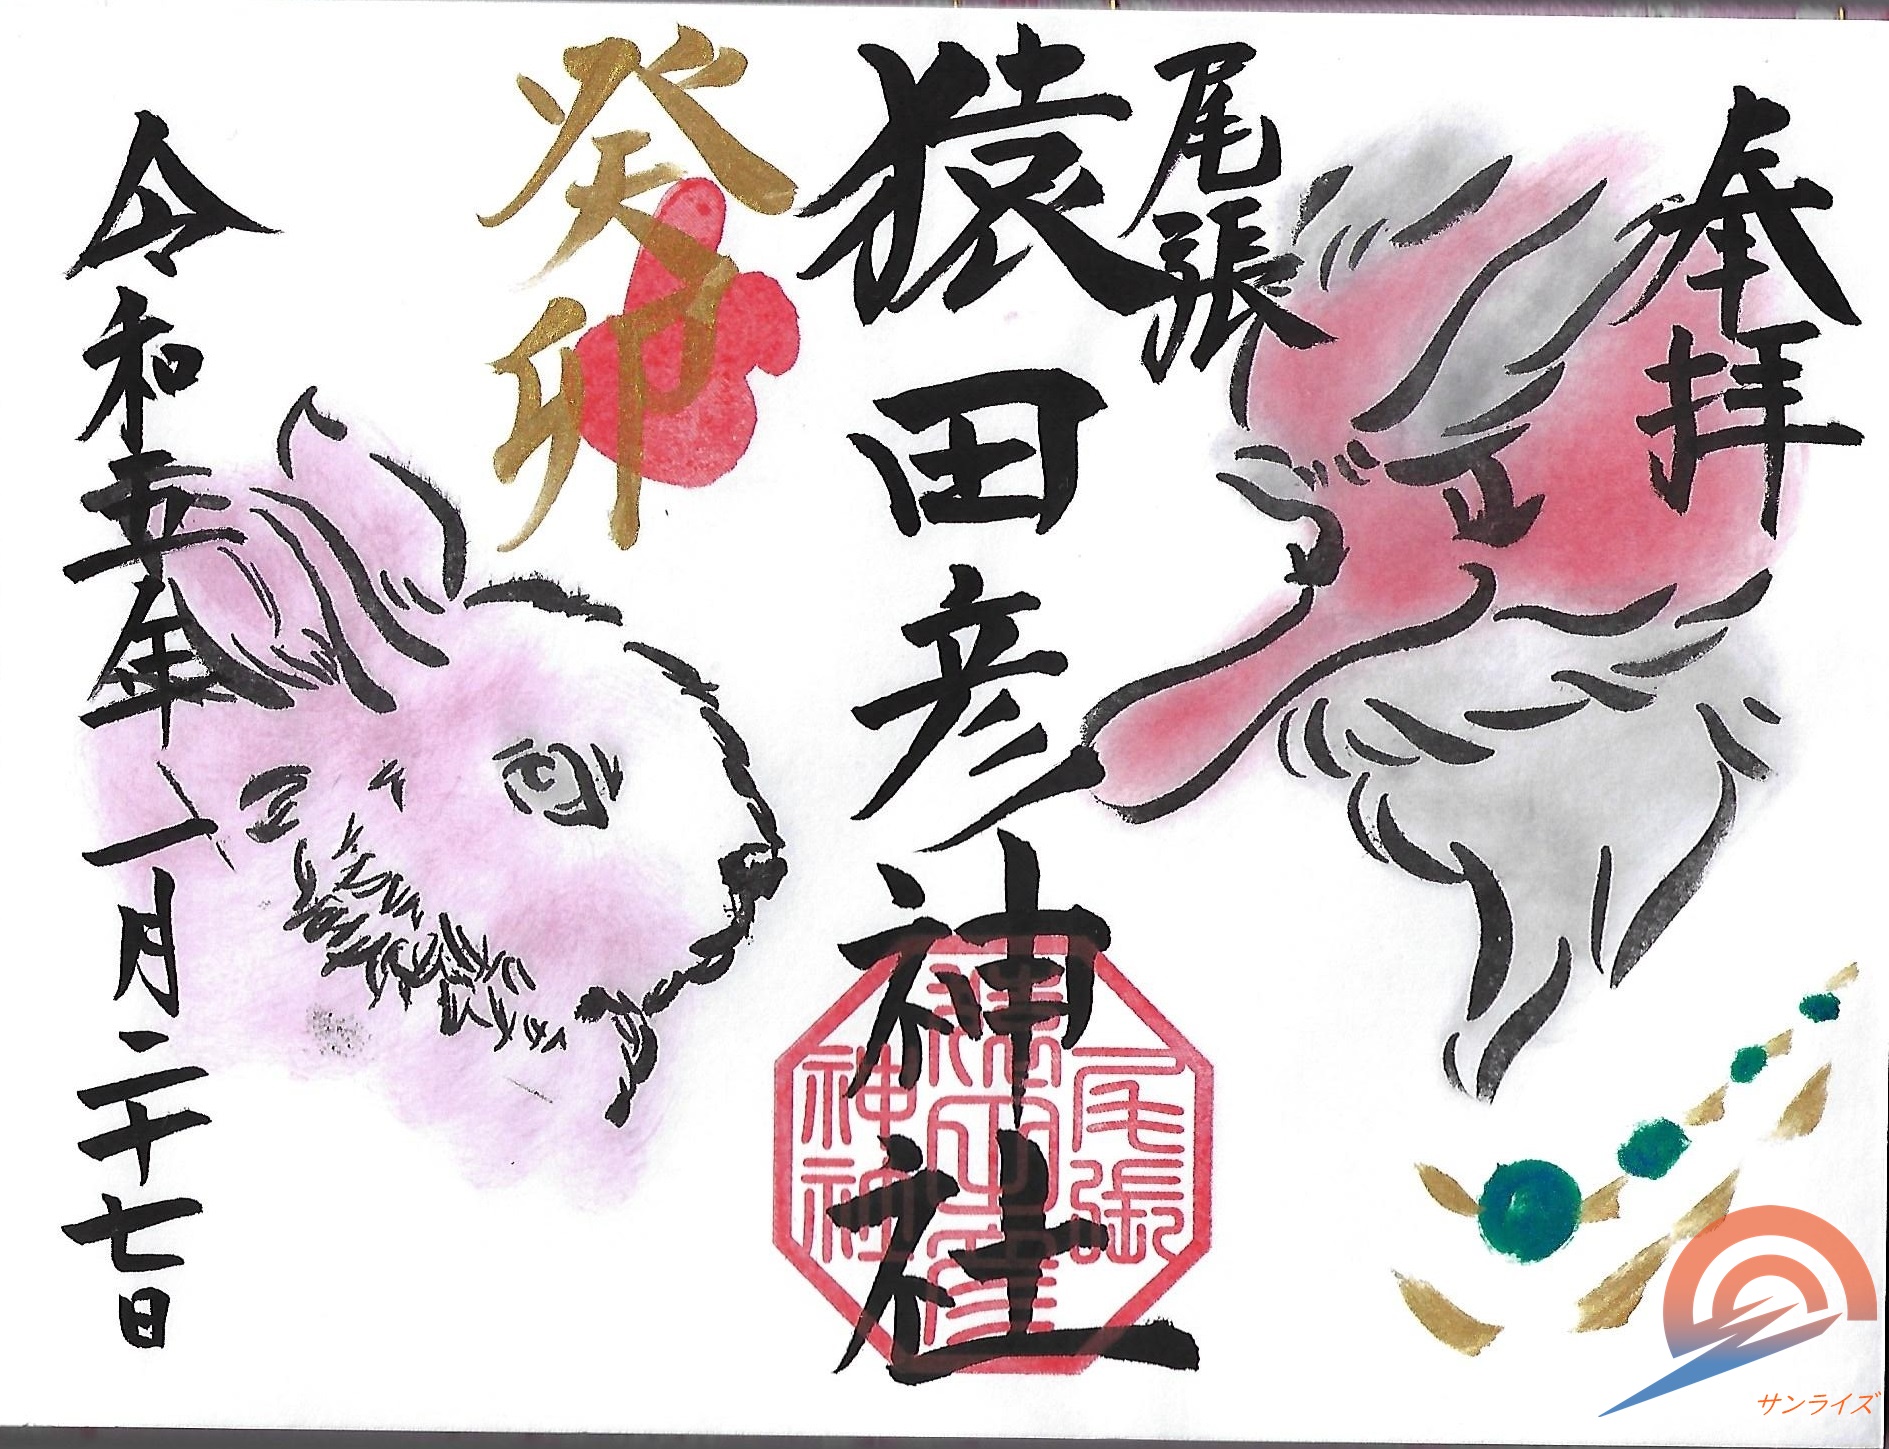 奉拝
尾張
猿田彦神社
尾張
猿田彦
神社
癸卯
令和五年一月二十七日
サンライズ